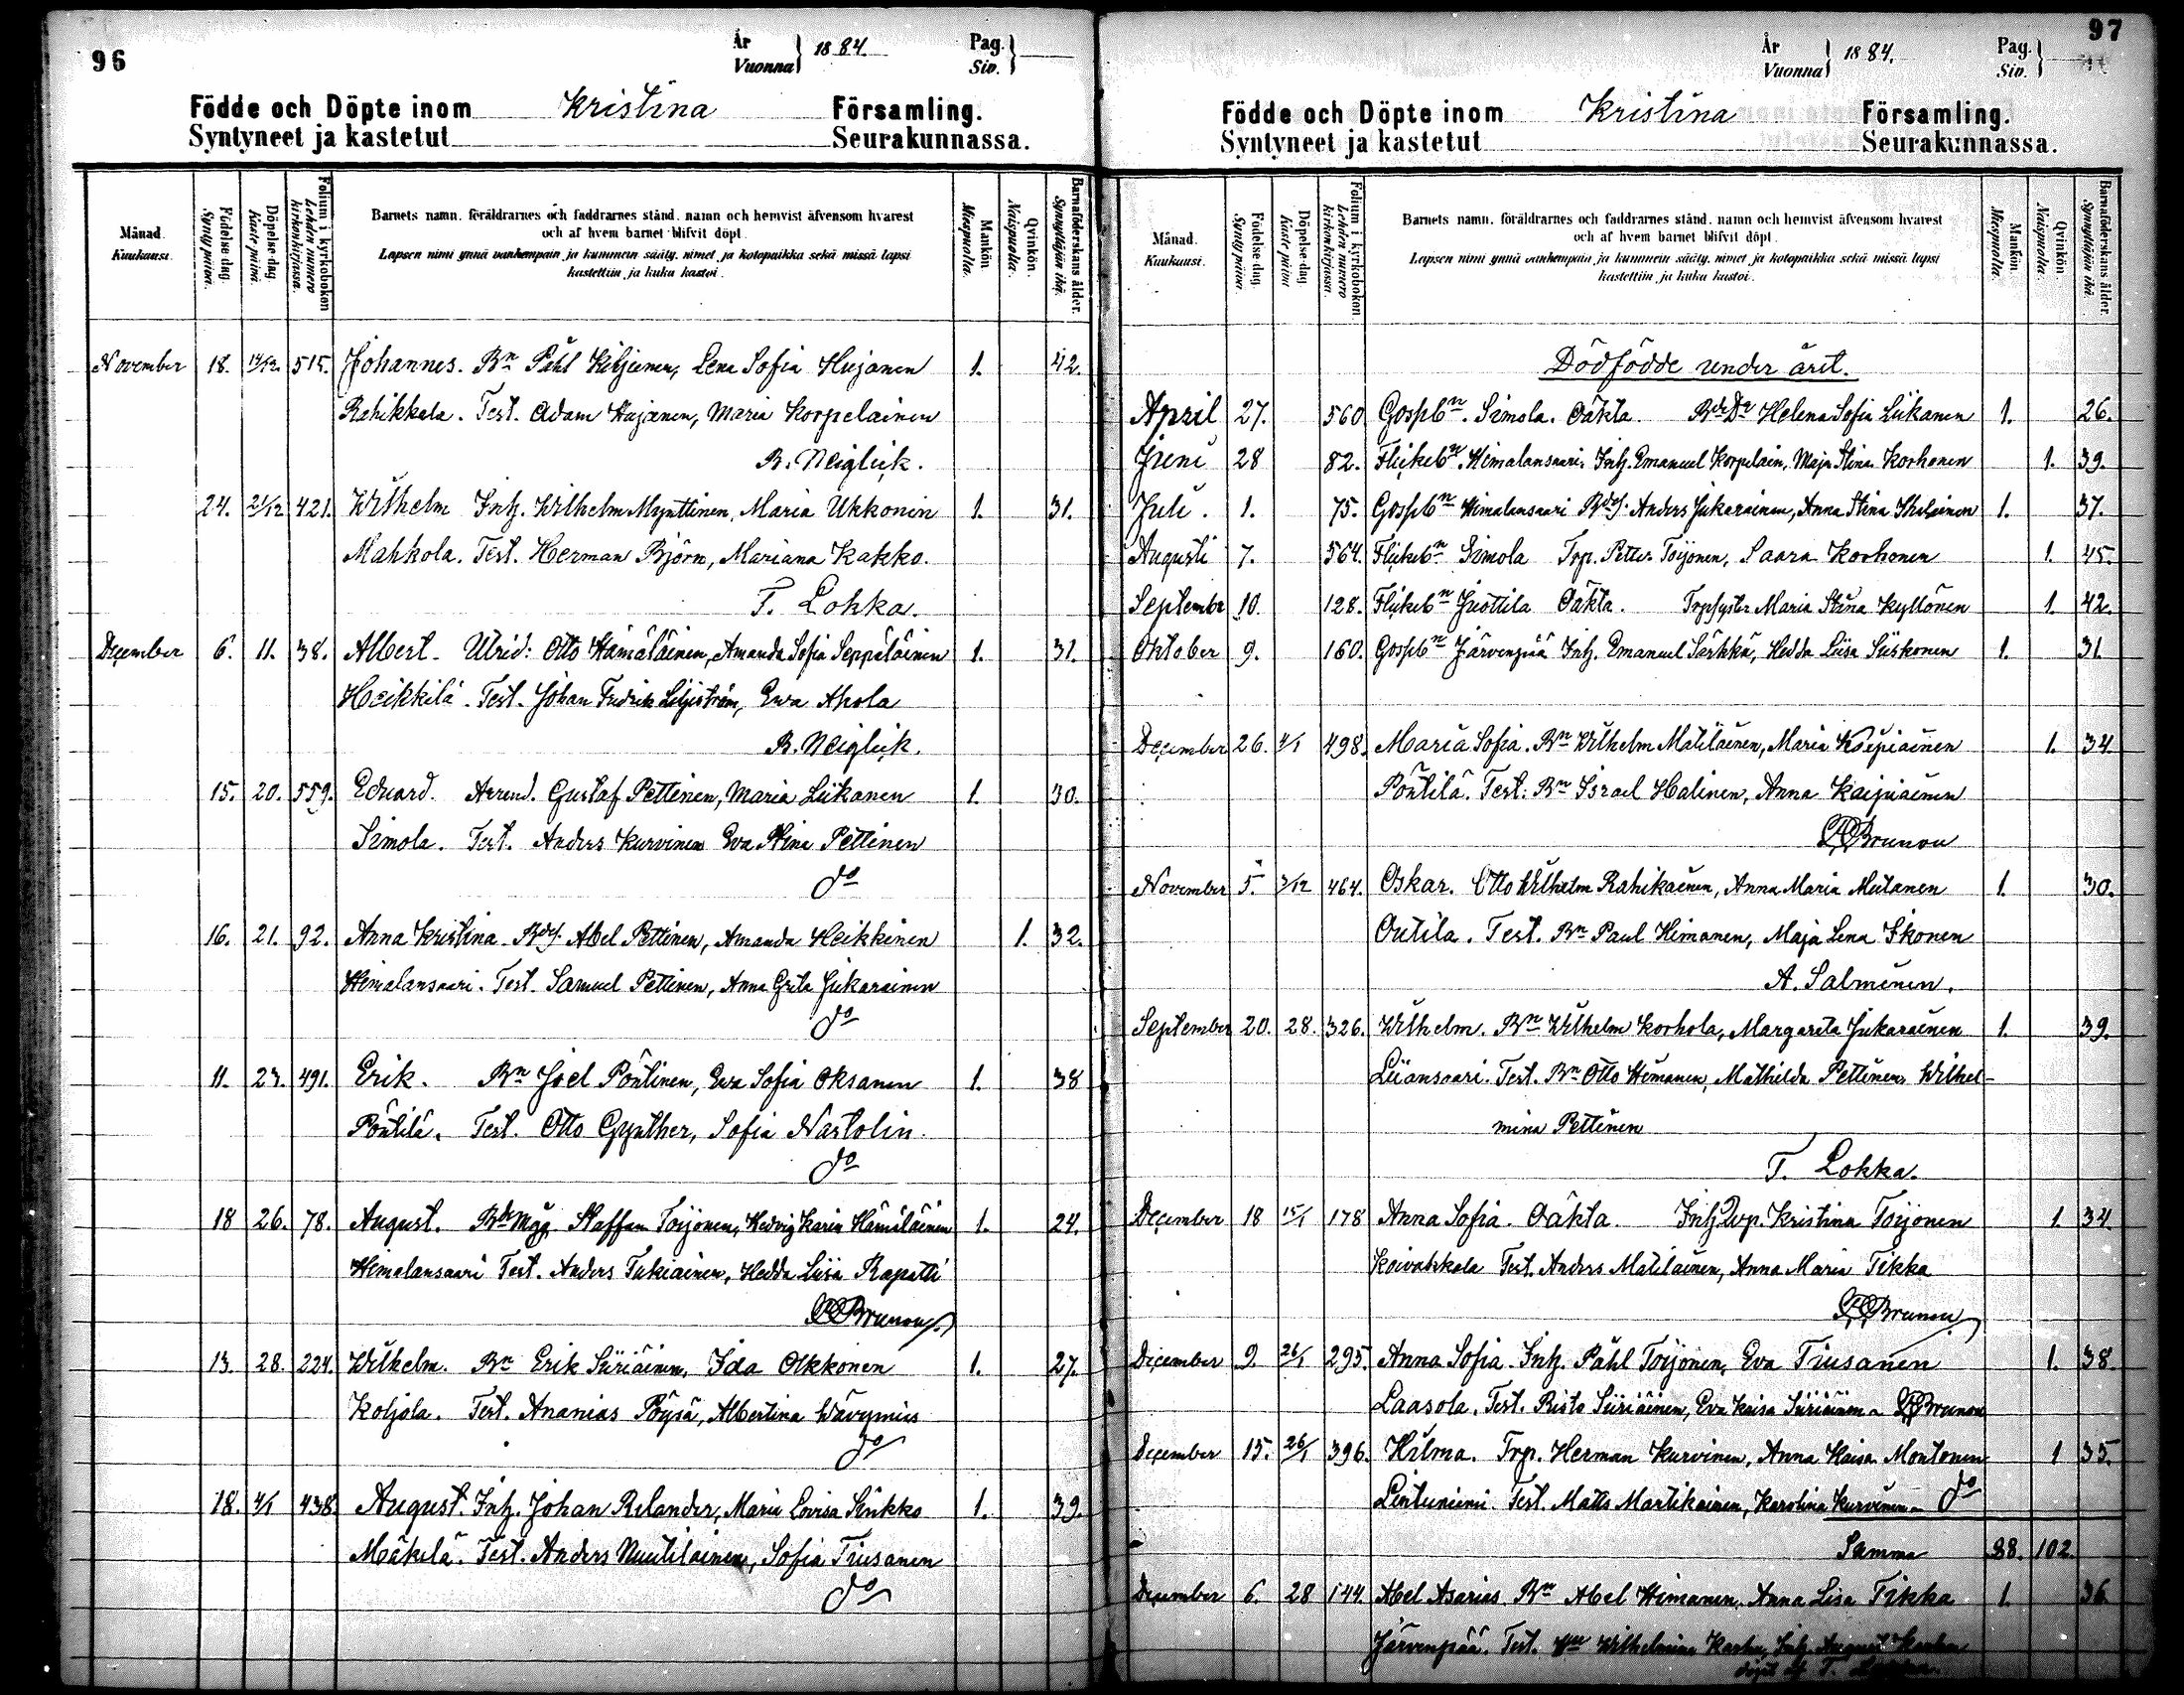 96
År
Vuonna } 1884.
Pag.
Siv. }
Födde och Döpte inom Kristina Församling.
Syntyneet ja kastetut Seurakunnassa.
Månad. Kuukausi.
Födelse-dag. Synty päivä.
Döpelse-dag. Kaste päivä.
Folium i kyrkobokon. Lehden numero kirkonkirjassa.
Barnets namn, föräldrarnes och faddrarnes stånd, namn och hemvist äfvensom hvarest
och af hvem barnet blifvit döpt.
Lapsen nimi ynnä vanhempain ja kummein sääty, nimet ja kotopaikka sekä missä lapsi
kastettiin ja kuka kastoi.
Mankön. Miespuolta.
Qvinkön. Naispuolta.
Barnaföderskans ålder. Synnyttäjän ikä.
November 18. 14/12. 515. Johannes. Bn Påhl Kiljunen, Lena Sofia Hujanen 1. 42.
Rahikkala. Test. Adam Hujanen, Maria Korpelainen
R. Neiglick.
24. 21/12 421. Wilhelm Inh. Wilhelm Mynttinen, Maria Ukkonen 1. 31.
Mahkola. Test. Herman Björn, Mariana Kakko.
T. Lokka.
December 6. 11. 38. Albert. Utrid: Otto Hämäläinen, Amanda Sofia Seppäläinen 1. 31.
Heikkilä. Test. Johan Fredrik Liljeström, Ewa Ahola
R. Neiglick.
15. 20. 559. Edvard. Arrend. Gustaf Pettinen, Maria Liikanen 1. 30.
Simola. Test. Anders Kurvinen Eva Stina Pettinen
do
16. 21. 92. Anna Kristina Bds. Abel Pettinen, Amanda Heikkinen 1. 32.
Himalansaari. Test. Samuel Pettinen, Anna Greta Jukarainen
do
11. 27. 491. Erik. Bn Joel Pöntinen, Eva Sofia Oksanen 1. 38
Pöntilä. Test. Otto Gynther, Sofia Nartolin.
do
18 26. 78. August. Bdr Mgg Staffan Toijonen, Hedvig Karin Hämäläinen 1. 24.
Himalansaari Test. Anders Tukiainen, Hedda Liisa Rapatti
Brunou
13. 28. 224. Wilhelm. Bn Erik Siiriäinen, Ida Olkkonen 1. 27.
Koljola. Test. Ananias Pöysä, Albertina Wävynius
do
18. 4/1 438 August. Inh. Johan Relander, Maria Lovisa Sinkko 1. 39.
Mäkelä. Test. Anders Nuutilainen, Sofia Tiusanen
do
97
År
Vuonna } 1884.
Pag.
Siv. }
Födde och Döpte inom Kristina Församling.
Syntyneet ja kastetut Seurakunnassa.
Månad. Kuukausi.
Födelse-dag. Synty päivä.
Döpelse-dag. Kaste päivä
Folium i kyrkobokon. Lehden numero kirkonkirjassa.
Barnets namn, föräldrarnes och faddrarnes stånd, namn och hemvist äfvensom hvarest
och af hvem barnet blifvit döpt.
Lapsen nimi ynnä vanhempain ja kummein sääty, nimet ja kotopaikka sekä missä lapsi
kastettiin ja kuka kastoi.
Mankön. Miespuolta.
Qvinkön. Naispuolta.
Barnaföderskans ålder. Synnyttäjän ikä.
Dödfödde under året.
April 27. 560 Gossbn. Simola. Oäkta. Bdr Dr Helena Sofia Liikanen 1. 26.
Juni 28 82. Flickebn. Himalansaari Inh. Emanuel Korpelain, Maja Stina Korhonen 1. 39.
Juli. 1. 75. Gossbn Himalansaari Bds. Anders Jukarainen, Anna Stina Ihalainen 1. 37.
Augusti 7. 564. Flickebn Simola Trp. Petter Toijonen, Saara Korhonen 1. 45.
Septembr 10. 128. Flickebn Juottila Oäkta. Trpsyster Maria Stina Kyllönen 1. 42.
Oktober 9. 160. Gossbn Järvenpää Inh. Emanuel Särkkä, Hedda Liisa Siiskonen 1. 31.
December 26. 4/1 498. Maria Sofia. Bn Wilhelm Matilainen, Maria Kaipiainen 1. 34.
Pöntilä. Test. Bn Israel Halinen, Anna Kaipiainen
Brunou
November 5. 3/12 464. Oskar. Otto Wilhelm Rahikainen, Anna Maria Miitanen 1. 30.
Outila. Test. Bn Paul Himanen, Maja Lena Ikonen
A. Salminen.
September 20. 28. 326. Wilhelm. Bn Wilhelm Korhola, Margareta Jukarainen 1. 39.
Liiansaari. Test. Bn Otto Himanen, Mathilda Pettinen Wilhel-
mina Pettinen
T. Lokka.
December 18 15/1 178 Anna Sofia. Oäkta. Inh. Kristina Toijonen 1. 34.
Koivakkala Test. Anders Matilainen, Anna Maria Tikka
Brunou
December 9. 26/1 295. Anna Sofia. Inh. Påhl Toijonen, Eva Tiusanen 1. 38.
Laasola. Test. Risto Siiriäinen, Eva Kaisa Siiriäinen Brunou
December 15. 26/1 396. Hilma. Trp. Herman Kurvinen, Anna Kaisa Montonen 1 35.
Lintuniemi Test. Matts Martikainen, Karolina Kurvinen do
Summa 88. 102.
December 6. 28 144. Abel Asarias Bn Abel Himanen, Anna Lisa Tikka 1. 36
Järvenpää. Test. Wilhelmina Karhu, Inh. August Karhu
döpt af T. Lokka.